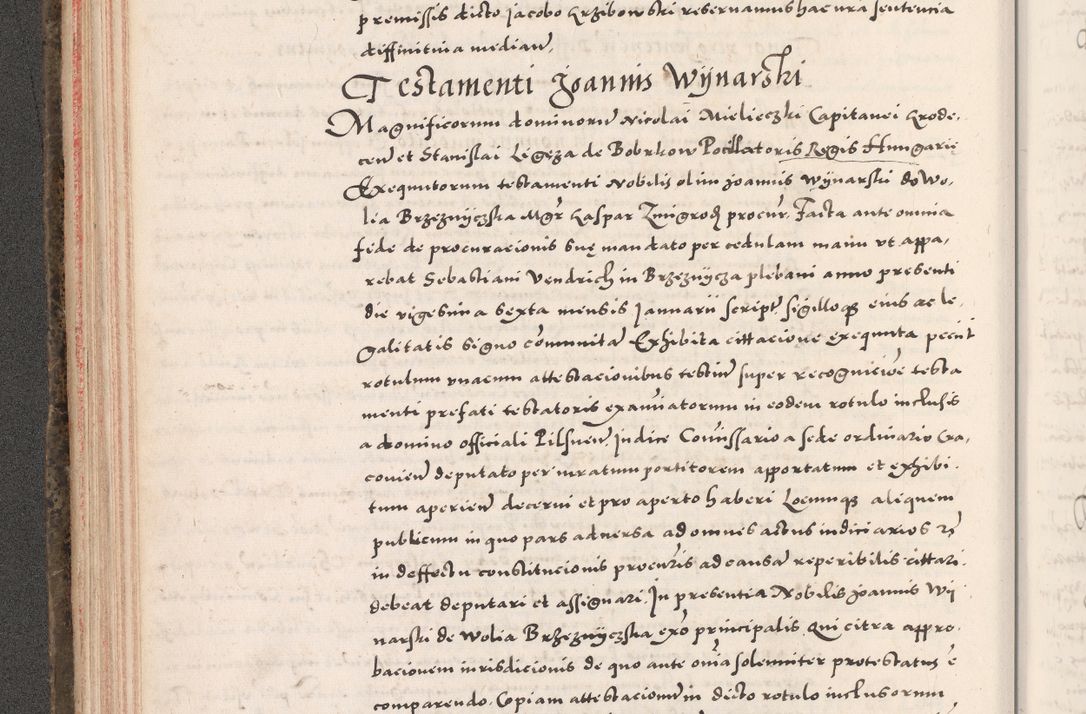 premissis dicto Jacobo Krzibowski reservamus hac n̄ra sententia
diffinitiva median̄.
Testamenti Joannis Wÿnarski
Magnificorum dominorū Nicolai Mielieczki Capitanei Grode.
cen̄ et Stanislai Ligęza de Bobrkow Pocillatoris Regis Hungarię
Exequutorum testamenti Nobilis olim Joannis Wÿnarski de Wo.
lia Brzeznÿczska Mgr̄ Kaspar Zmigrod procur̄. Facta ante omnia
fide de procuracionis suę mandato per cedulam manu ut appa,
rebat Sebastiani Vendrich in Brzeznÿcza plebani anno presenti
die vigesima sexta mensis Januarii script̄ sigilloq̨ eius ac le,
galitatis signo com̄unita Exhibita cittacione exequuta peciit
rotulum unacum attestacionibus testiū super recognicione testa
menti prefati testatoris examinatorum in eodem rotulo inclusis
a domino officiali Pilsnen̄ Judice Com̄issario a sede ordinario Cra,
covien̄ deputato per iuratum portitorem apportatum et exhibi.
tum aperien̄ decerni et pro aperto haberi Locumq̨ aliquem
publicum in quo pars adversa ad omnes actus iudiciarios
in deffectu constitucionis procur̄is ad causā reperibilis cittari
debeat deputari et assignari. In presentia Nobilis Joannis Wÿ
narski de Wolia Brzeznÿczska ex̄o principalis. Qui citra appro.
bacionem iurisdicionis de quo ante om̄ia solenniter protestatus ē
comparendo. Copiam attestacionū in dicto rotulo inclusorum